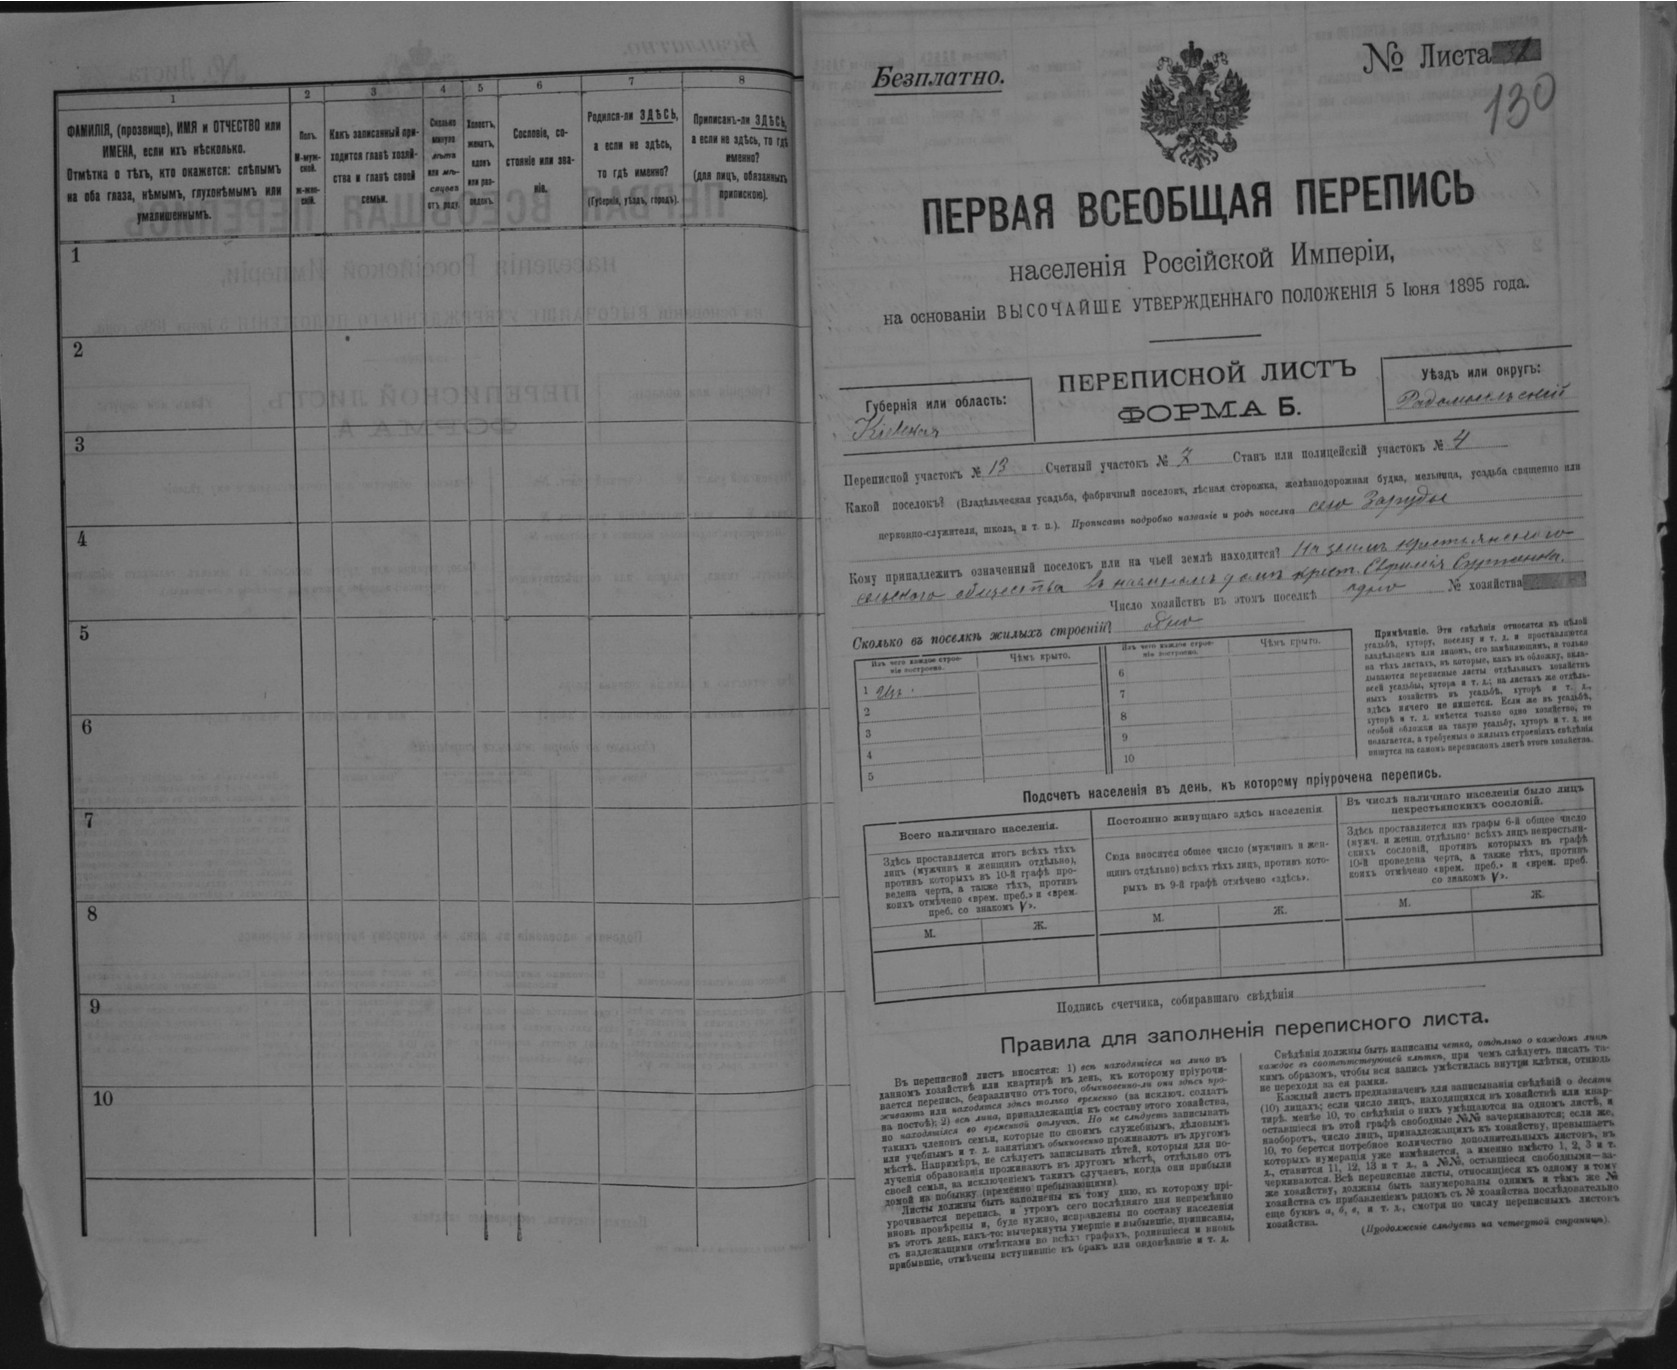 1
2
3
4
5
6
7
8
ФАМИЛІЯ, (прозвище), ИМЯ и ОТЧЕСТВО или
ИМЕНА, если ихъ нѣсколько.
Отмѣтка о тѣхъ, кто окажется: слѣпымъ
на оба глаза, нѣмымъ, глухонѣмымъ или
умалишеннымъ.
Полъ.
М-муж-
ской.
ж-жен-
скій.
Какъ записанный при-
ходится главѣ хозяй-
ства и главѣ своей
семьи.
Сколько
минуло
лѣтъ
или мѣ-
сяцевъ
отъ роду.
Холостъ,
женатъ,
вдовъ
или раз-
веденъ.
Сословіе, со-
стояніе или зва-
ніе.
Родился-ли ЗДѢСЬ,
а если не здѣсь,
то гдѣ именно?
(Губернія, уѣздъ, городъ).
Приписанъ-ли ЗДѢСЬ,
а если не здѣсь, то гдѣ
именно?
(для лицъ, обязанныхъ
припискою).
1
2
3
4
5
6
7
8
9
10
Безплатно.
№ Листа
130
ПЕРВАЯ ВСЕОБЩАЯ ПЕРЕПИСЬ
населенія Россійской Имперіи,
на основаніи ВЫСОЧАЙШЕ УТВЕРЖДЕННАГО ПОЛОЖЕНІЯ 5 Іюня 1895 года.
Губернія или область:
Кіевская
ПЕРЕПИСНОЙ ЛИСТЪ
ФОРМА Б.
Уѣздъ или округъ:
Радомысльскій
Переписной участокъ № 13 Счетный участокъ № 7 Станъ или полицейскій участокъ № 4
Какой поселокъ? (Владѣльческая усадьба, фабричный поселокъ, лѣсная сторожка, желѣзнодорожная будка, мельница, усадьба священно или
церковно-служителя, школа, и т. п.). Прописать подробно названіе и родъ поселка село Заруды
Кому принадлежитъ означенный поселокъ или на чьей землѣ находится? На землѣ крестьянского
сельского общества въ домѣ крест. Ефимія
Число хозяйствъ въ этомъ поселкѣ одно № хозяйства
Сколько въ поселкѣ жилыхъ строеній? одно
Изъ чего каждое строе-
ніе построено.
Чѣмъ крыто.
Изъ чего каждое строе-
ніе построено.
Чѣмъ крыто.
1
2
3
4
5
6
7
8
9
10
Примѣчаніе. Эти свѣдѣнія относятся къ цѣлой
усадьбѣ, хутору, поселку и т. д. и проставляются
владѣльцемъ или лицомъ, его замѣняющимъ, и только
на тѣхъ листахъ, въ которые, какъ въ обложку, вкла-
дываются переписные листы отдѣльныхъ хозяйствъ
всей усадьбы, хутора и т. д.; на листахъ же отдѣль-
ныхъ хозяйствъ въ усадьбѣ, хуторѣ и т. д.,
здѣсь ничего не пишется. Если же въ усадьбѣ,
хуторѣ и т. д. имѣется только одно хозяйство, то
особой обложки на такую усадьбу, хуторъ и т. д. не
полагается, а требуемыя о жилыхъ строеніяхъ свѣдѣнія
пишутся на самомъ переписномъ листѣ этого хозяйства.
Подсчетъ населенія въ день, къ которому пріурочена перепись.
Всего наличнаго населенія.
Здѣсь проставляется итогъ всѣхъ тѣхъ
лицъ (мужчинъ и женщинъ отдѣльно),
противъ которыхъ въ 10-й графѣ про-
ведена черта, а также тѣхъ, противъ
коихъ отмѣчено «врем. преб.» и «врем.
преб. со знакомъ V».
М.
Ж.
Постоянно живущаго здѣсь населенія.
Сюда вносится общее число (мужчинъ и жен-
щинъ отдѣльно) всѣхъ тѣхъ лицъ, противъ кото-
рыхъ въ 9-й графѣ отмѣчено «здѣсь».
М.
Ж.
Въ числѣ наличнаго населенія было лицъ
некрестьянскихъ сословій.
Здѣсь проставляется изъ графы 6-й общее число
(мужч. и женщ. отдѣльно) всѣхъ лицъ некрестьян-
скихъ сословій, противъ которыхъ въ графѣ
10-й проведена черта, а также тѣхъ, противъ
коихъ отмѣчено «врем. преб.» и «врем. преб.
со знакомъ V».
М.
Ж.
Подпись счетчика, собиравшаго свѣдѣнія
Правила для заполненія переписного листа.
Въ переписной листъ вносятся: 1) всѣ находящіеся на лицо въ
данномъ хозяйствѣ или квартирѣ въ день, къ которому пріурочи-
вается перепись, безразлично отъ того, обыкновенно-ли они здѣсь про-
живаютъ или находятся здѣсь только временно (за исключ. солдатъ
на постоѣ); 2) всѣ лица, принадлежащія къ составу этого хозяйства,
но находящіяся во временной отлучкѣ. Но не слѣдуетъ записывать
такихъ членовъ семьи, которые по своимъ служебнымъ, дѣловымъ
или учебнымъ и т. д. занятіямъ обыкновенно проживаютъ въ другомъ
мѣстѣ. Напримѣръ, не слѣдуетъ записывать дѣтей, которыя для по-
лученія образованія проживаютъ въ другомъ мѣстѣ, отдѣльно отъ
своей семьи, за исключеніемъ такихъ случаевъ, когда они прибыли
домой на побывку (временно пребывающими).
Листы должны быть заполнены къ тому дню, къ которому прі-
урочивается перепись, и утромъ сего послѣдняго дня непремѣнно
вновь провѣрены и, буде нужно, исправлены по составу населенія
въ этотъ день, какъ-то: вычеркнуты умершіе и выбывшіе, приписаны,
съ надлежащими отмѣтками во всѣхъ графахъ, родившіеся и вновь
прибывшіе, отмѣчены вступившіе въ бракъ или овдовѣвшіе и т. д.
Свѣдѣнія должны быть написаны четко, отдѣльно о каждомъ лицѣ
каждое въ соотвѣтствующей клѣткѣ, при чемъ слѣдуетъ писать та-
кимъ образомъ, чтобы вся запись умѣстилась внутри клѣтки, отнюдь
не переходя за ея рамки.
Каждый листъ предназначенъ для записыванія свѣдѣній о десяти
(10) лицахъ; если число лицъ, находящихся въ хозяйствѣ или квар-
тирѣ, менѣе 10, то свѣдѣнія о нихъ умѣщаются на одномъ листѣ, и
оставшіеся въ этой графѣ свободные №№ зачеркиваются; если же,
наоборотъ, число лицъ, принадлежащихъ къ хозяйству, превышаетъ
10, то берется потребное количество дополнительныхъ листовъ, въ
которыхъ нумерація уже измѣняется, а именно вмѣсто 1, 2, 3 и т.
д., ставится 11, 12, 13 и т. д., а №№, оставшіеся свободными—за-
черкиваются. Всѣ переписные листы, относящіеся къ одному и тому
же хозяйству, должны быть занумерованы однимъ и тѣмъ же №
хозяйства съ прибавленіемъ рядомъ съ № хозяйства послѣдовательно
еще буквъ а, б, в, и т. д., смотря по числу переписныхъ листовъ
хозяйства.
(Продолженіе слѣдуетъ на четвертой страницѣ).